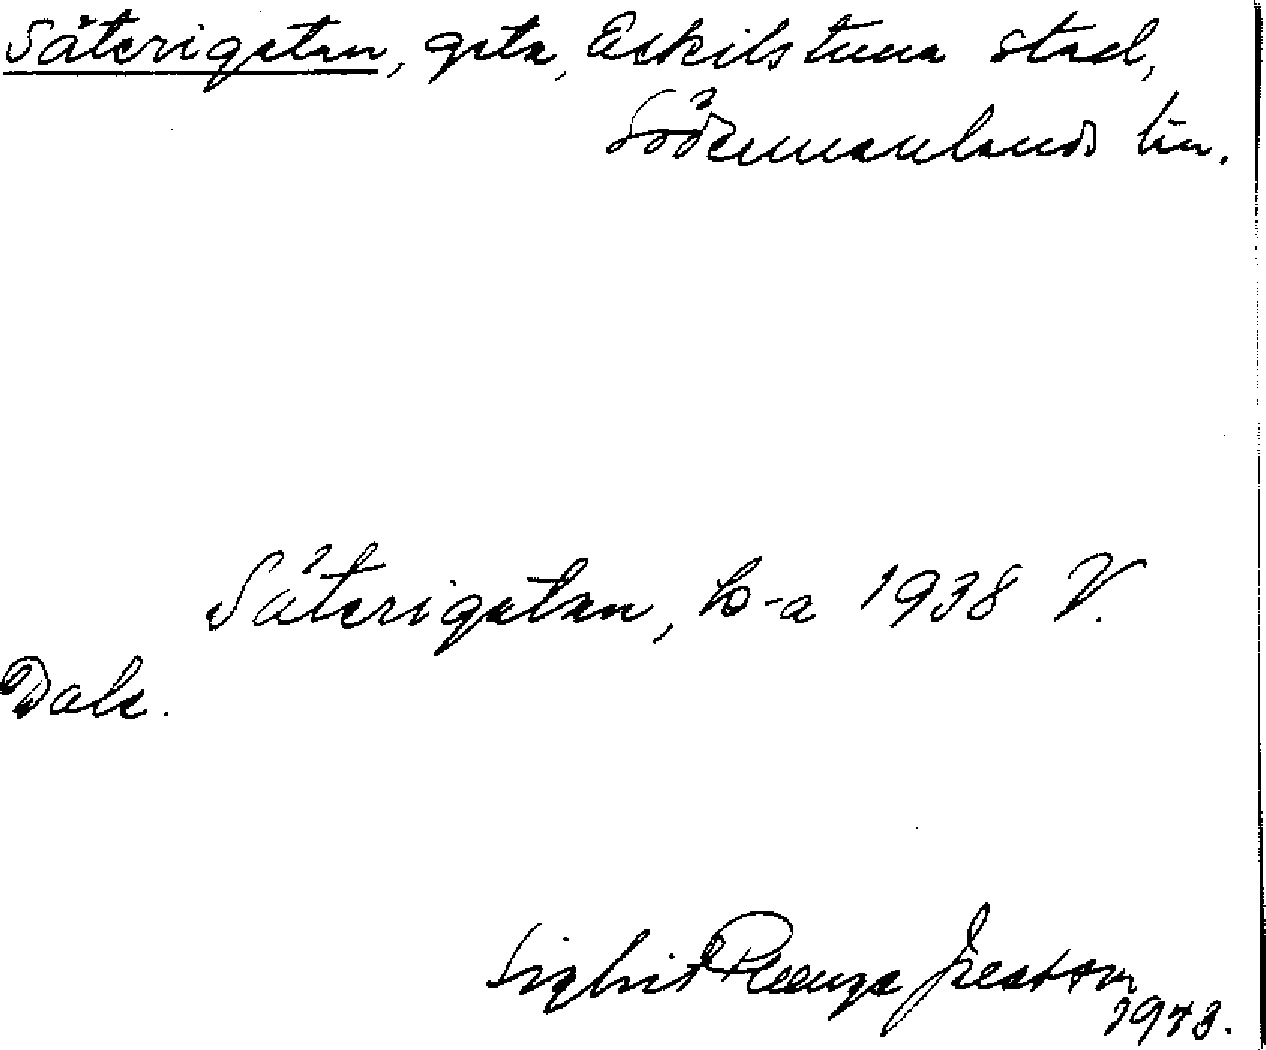 Säterigatan, gata, Eskilstuna stad,
Södermanlands län.
Säterigatan, ko-a 1938 V.
Dals.
Sigbrit Plænge Jacobson
1973.